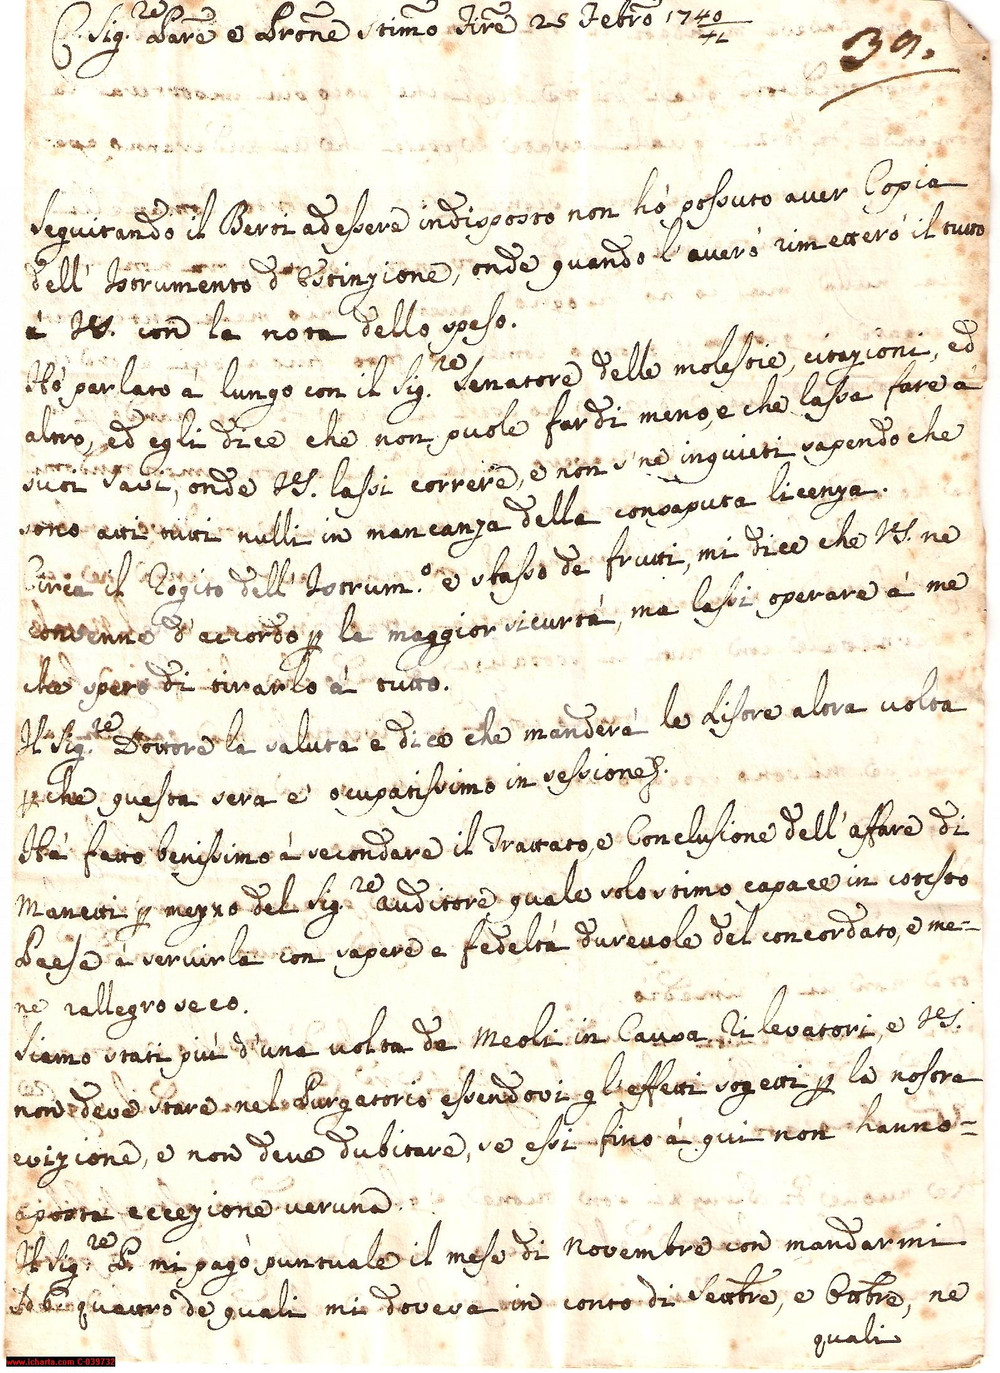 Sig.re Pare e Prone Stimo Fire 25 Febro 1740/41
39.
Seguitando il Berti ad essere indisposto non hò possuto aver Copia
dell' Istrumento d'Estinzione, onde quando l'averò rimetterò il tutto
à VS. con la nota dello speso.
Hò parlato à lungo con il Sig.re Senatore delle molestie, citazioni, ed
altro, ed egli dice che non puole far di meno, e che lassa fare à
suoi savi, onde VS. lassi correre, e non s'ne inquieti sapendo che
sono atti tutti nulli in mancanza della consaputa licenza.
Circa il Rogito dell' Istrum.o e stasso de frutti, mi dice che VS. ne
convenne d'accordo p la maggior sicurtà, ma lassi operare à me
che spero di tirarlo à tutto.
Il Sig.re Dottore la saluta e dice che manderà le distre altra volta
pche questa sera è ocupatissimo in sessione.
Hà fatto benissimo à secondare il Trattato, e Conclusione dell'affare di
Manetti p mezzo del Sig.re Auditore quale solo stimo capace in cotesto
Paese à servirla con sapere e fedeltà durevole del concordato, e me=
ne rallegro seco.
Siamo stati più d'una volta da Meoli in Causa Ri levatori, e VS.
non deve stare nel Purgatorio essendovi gl'effetti sogetti p la nostra
evizione, e non deve dubitare, se essi fino à qui non hanno=
aposta eccezione veruna.
Il Sig.re P. mi pagò puntuale il mese di Novembre con mandarmi
quattro de quali mi doveva in conto di Settbre, e Ottbre, ne
quali
www.icharta.com C-039732